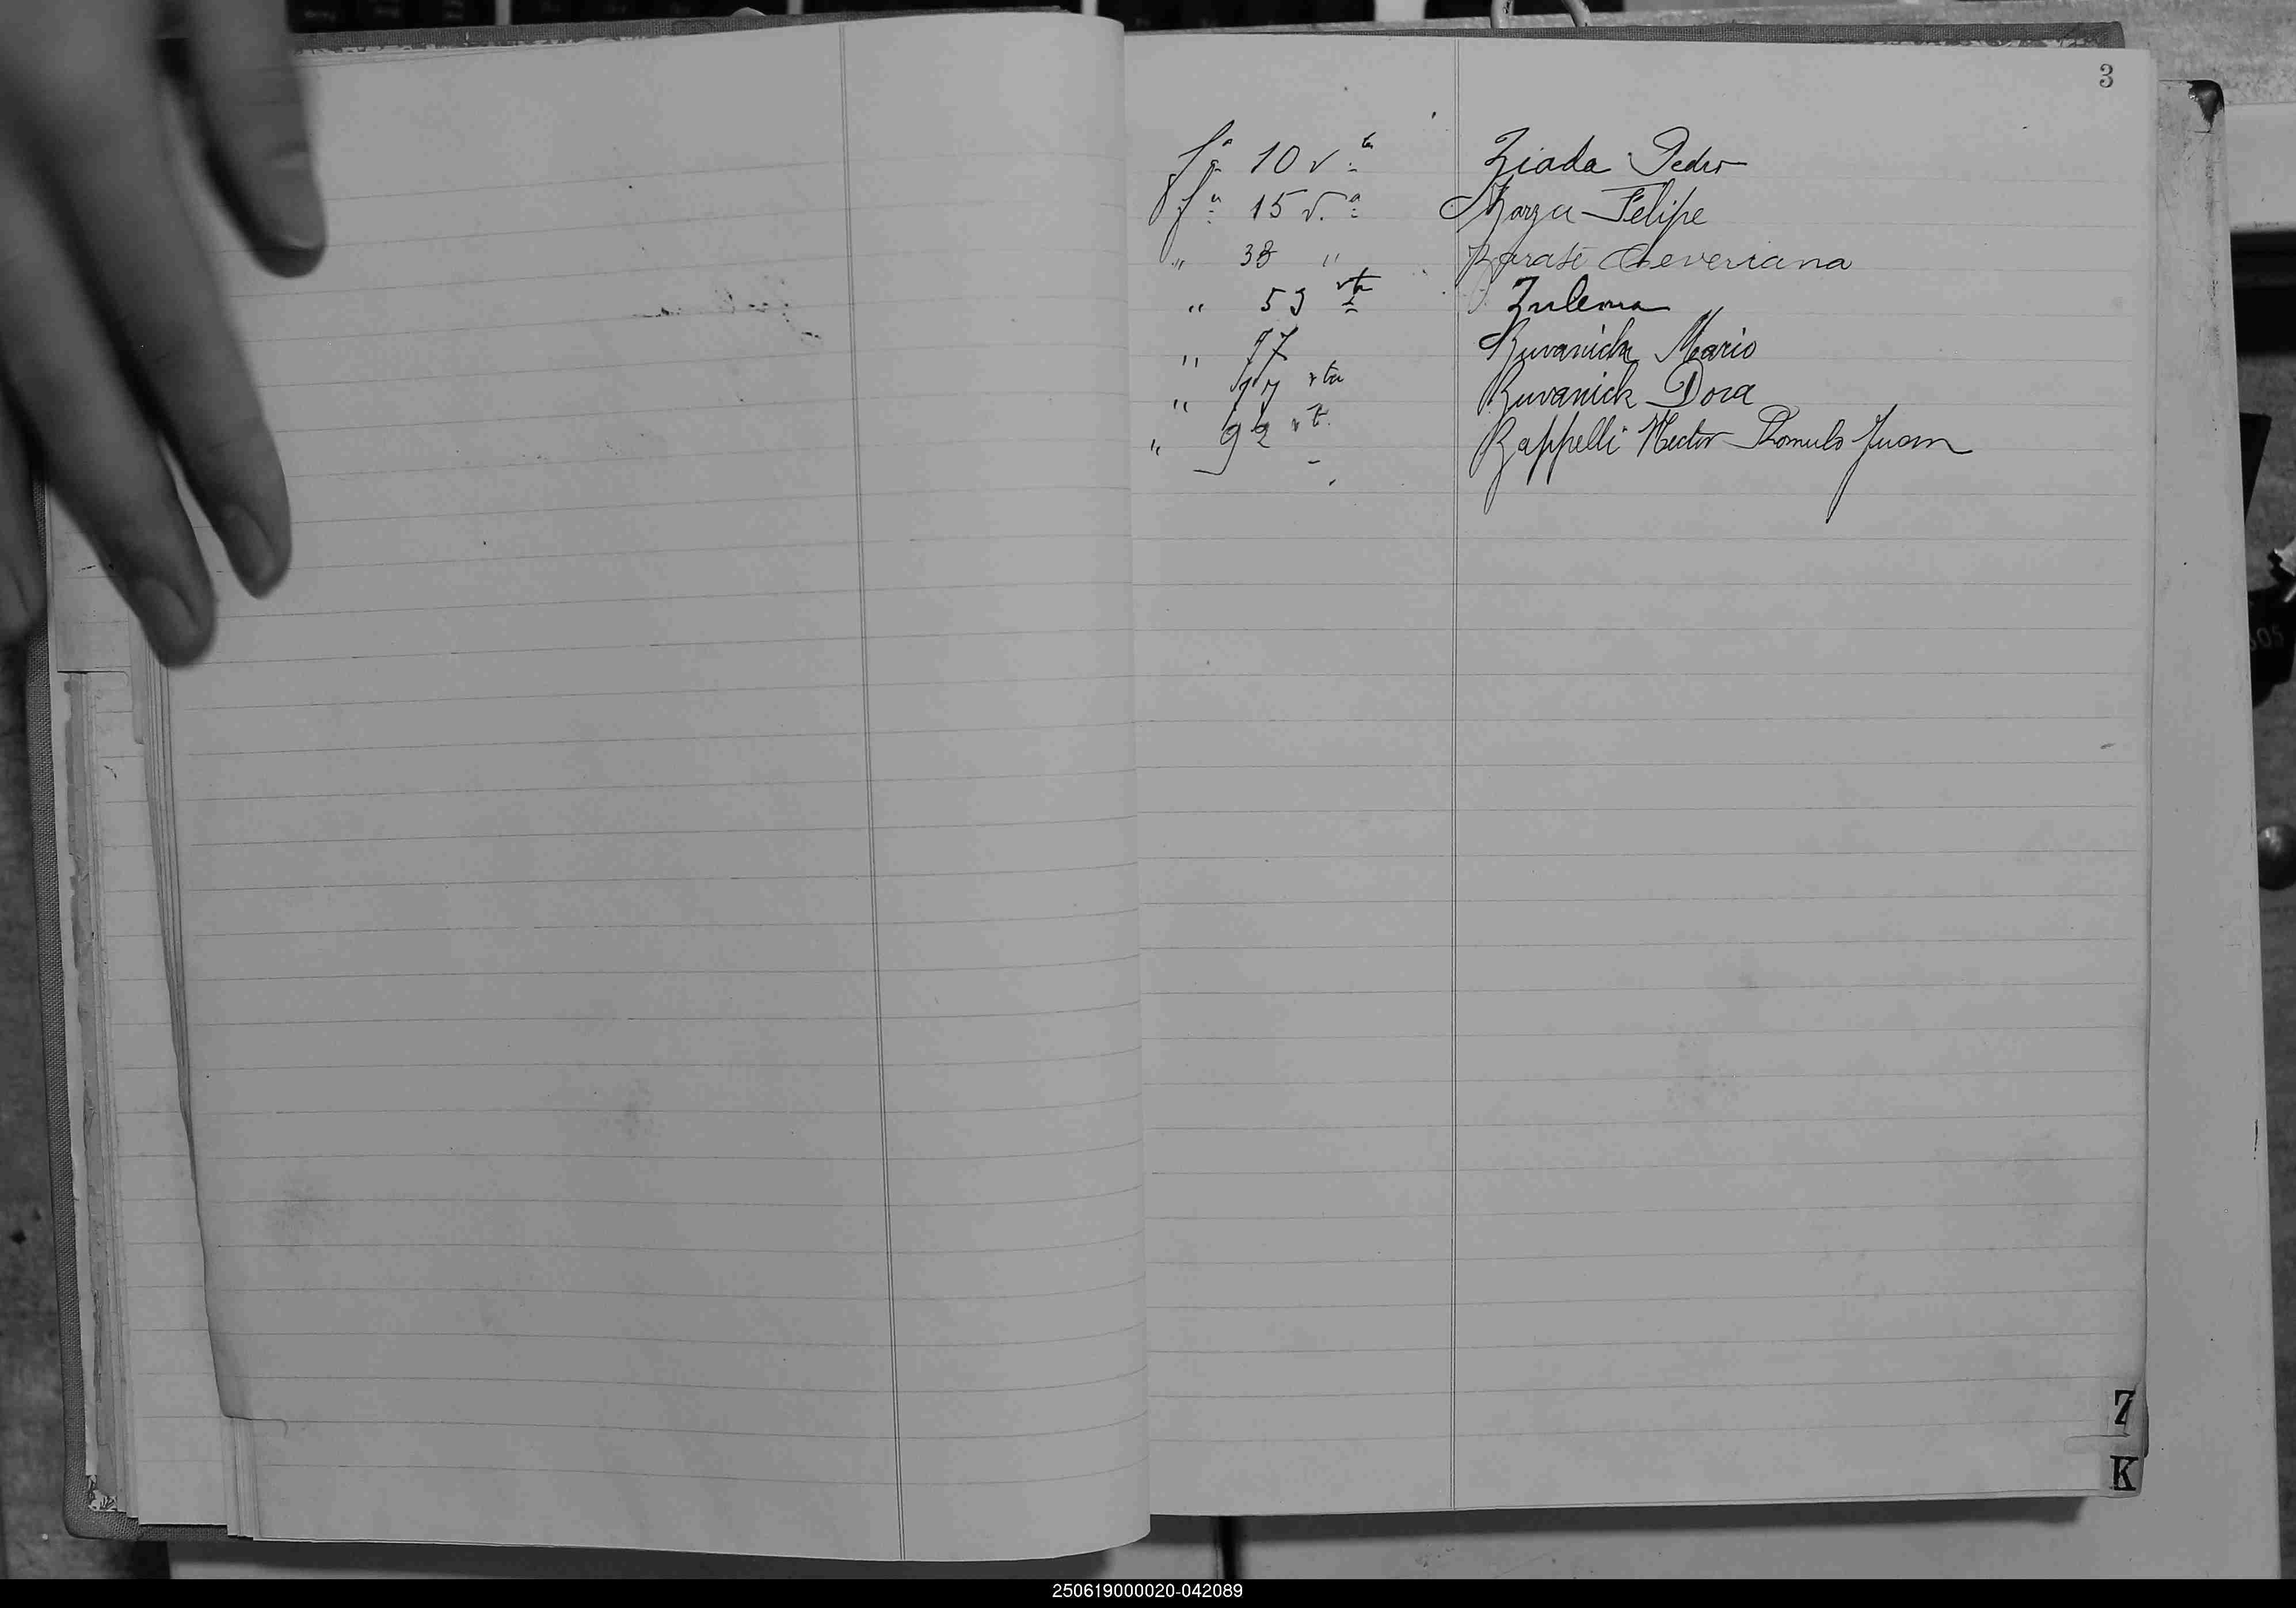 3
fª 10 vta Ziada Pedro
fª 15 v.ª Zarza Felipe
" 38 " Zarate Ceveriana
" 59 vta Zulema
" 77 Zuvanich Mario
" 77 vta Zuvanick Dora
" 92 vt. Zappelli Hector Romulo Juan
Z
K
250619000020-042089